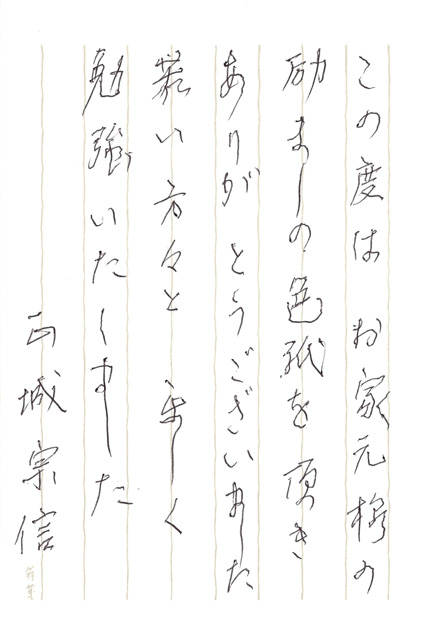 この度は お家元様の
励ましの色紙を頂き
ありがとうございました
若い方々と 楽しく
勉強いたしました
城宗信